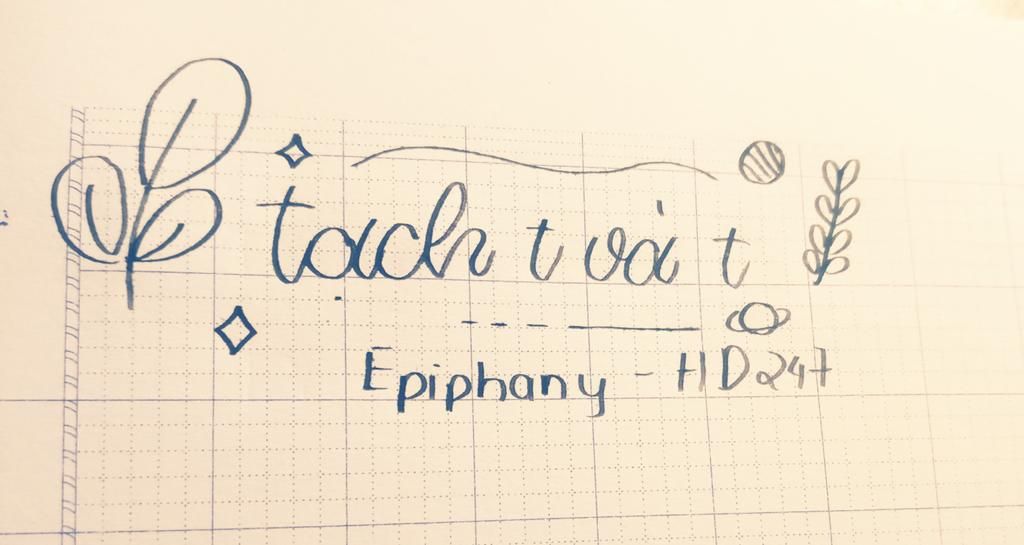 tạch t và t
Epiphany - HD247